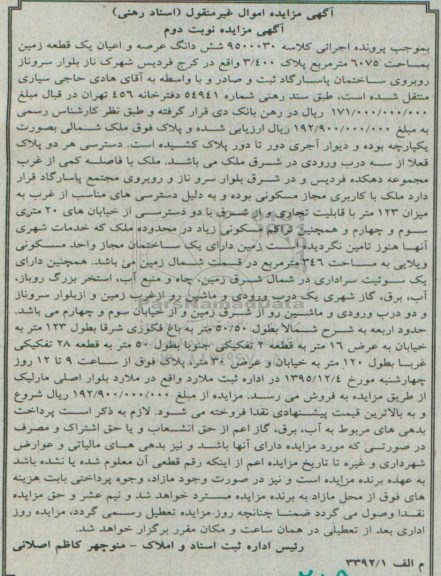 آگهی مزایده اموال غیرمنقول (اسناد رهنی)
آگهی مزایده نوبت دوم
بموجب پرونده اجرائی کلاسه ۹۵۰۰۰۳۰ شش دانگ عرصه و اعیان یک قطعه زمین
بمساحت ۶۰۷۵ مترمربع پلاک ۳/۴۰۰ واقع در کرج فردیس شهرک ناز بلوار سروناز
روبروی ساختمان پاسارگاد ثبت و صادر و با واسطه به آقای هادی حاجی سیاری
منتقل شده است، طبق سند رهنی شماره ۵۴۹۴۱ دفترخانه ۴۵۶ تهران در قبال مبلغ
۱۷۱/۰۰۰/۰۰۰/۰۰۰ ریال در رهن بانک دی قرار گرفته و طبق نظر کارشناس رسمی
به مبلغ ۱۹۲/۹۰۰/۰۰۰/۰۰۰ ریال ارزیابی شده و پلاک فوق ملک شمالی بصورت
یکپارچه بوده و دیوار آجری دور تا دور پلاک کشیده است. دسترسی هر دو پلاک
فعلا از سه درب ورودی در شرق ملک می باشد. ملک با فاصله کمی از غرب
مجموعه دهکده فردیس و در شرق بلوار سرو ناز و روبروی مجتمع پاسارگاد قرار
دارد ملک با کاربری مجاز مسکونی بوده و به دلیل دسترسی های مناسب از غرب به
میزان ۱۲۳ متر با قابلیت تجاری و از شرق با دو دسترسی از خیابان های ۲۰ متری
سوم و چهارم و همچنین تراکم مسکونی زیاد در محدوده ملک که خدمات شهری
آنها هنوز تامین نگردیده است زمین دارای یک ساختمان مجاز واحد مسکونی
ویلایی به مساحت ۳۴۶ مترمربع در قسمت شمال زمین می باشد. همچنین دارای
یک سوئیت سرایداری در شمال شرق زمین، چاه و منبع آب، استخر بزرگ روباز،
آب، برق، گاز شهری یک درب ورودی و ماشین رو ازغرب زمین و ازبلوار سروناز
و دو درب ورودی و ماشین رو از شرق زمین و از خیابان سوم و چهارم می باشد.
حدود اربعه به شرح شمالا بطول ۵۰/۵۰ متر به باغ فکوری شرقا بطول ۱۲۳ متر به
خیابان به عرض ۱۶ متر به قطعه ۲ تفکیکی جنوبا بطول ۵۰ متر به قطعه ۲۸ تفکیکی
غربا بطول ۱۲۰ متر به خیابان و عرض ۳۰ متر، پلاک فوق از ساعت ۹ تا ۱۲ روز
چهارشنبه مورخ ۱۳۹۵/۱۲/۴ در اداره ثبت ملارد واقع در ملارد بلوار اصلی مارلیک
از طریق مزایده به فروش می رسد. مزایده از مبلغ ۱۹۲/۹۰۰/۰۰۰/۰۰۰ ریال شروع
و به بالاترین قیمت پیشنهادی نقدا فروخته می شود. لازم به ذکر است پرداخت
بدهی های مربوط به آب، برق، گاز اعم از حق انشعاب و یا حق اشتراک و مصرف
در صورتی که مورد مزایده دارای آنها باشد و نیز بدهی های مالیاتی و عوارض
شهرداری و غیره تا تاریخ مزایده اعم از اینکه رقم قطعی آن معلوم شده یا نشده باشد
به عهده برنده مزایده است و نیز در صورت وجود مازاد، وجوه پرداختی بابت هزینه
های فوق از محل مازاد به برنده مزایده مسترد خواهد شد و نیم عشر و حق مزایده
نقدا وصول می گردد ضمنا چنانچه روز مزایده تعطیل رسمی گردد، مزایده روز
اداری بعد از تعطیلی در همان ساعت و مکان مقرر برگزار خواهد شد.
رئیس اداره ثبت اسناد و املاک – منوچهر کاظم اصلانی
م الف ۳۳۹۲/۱